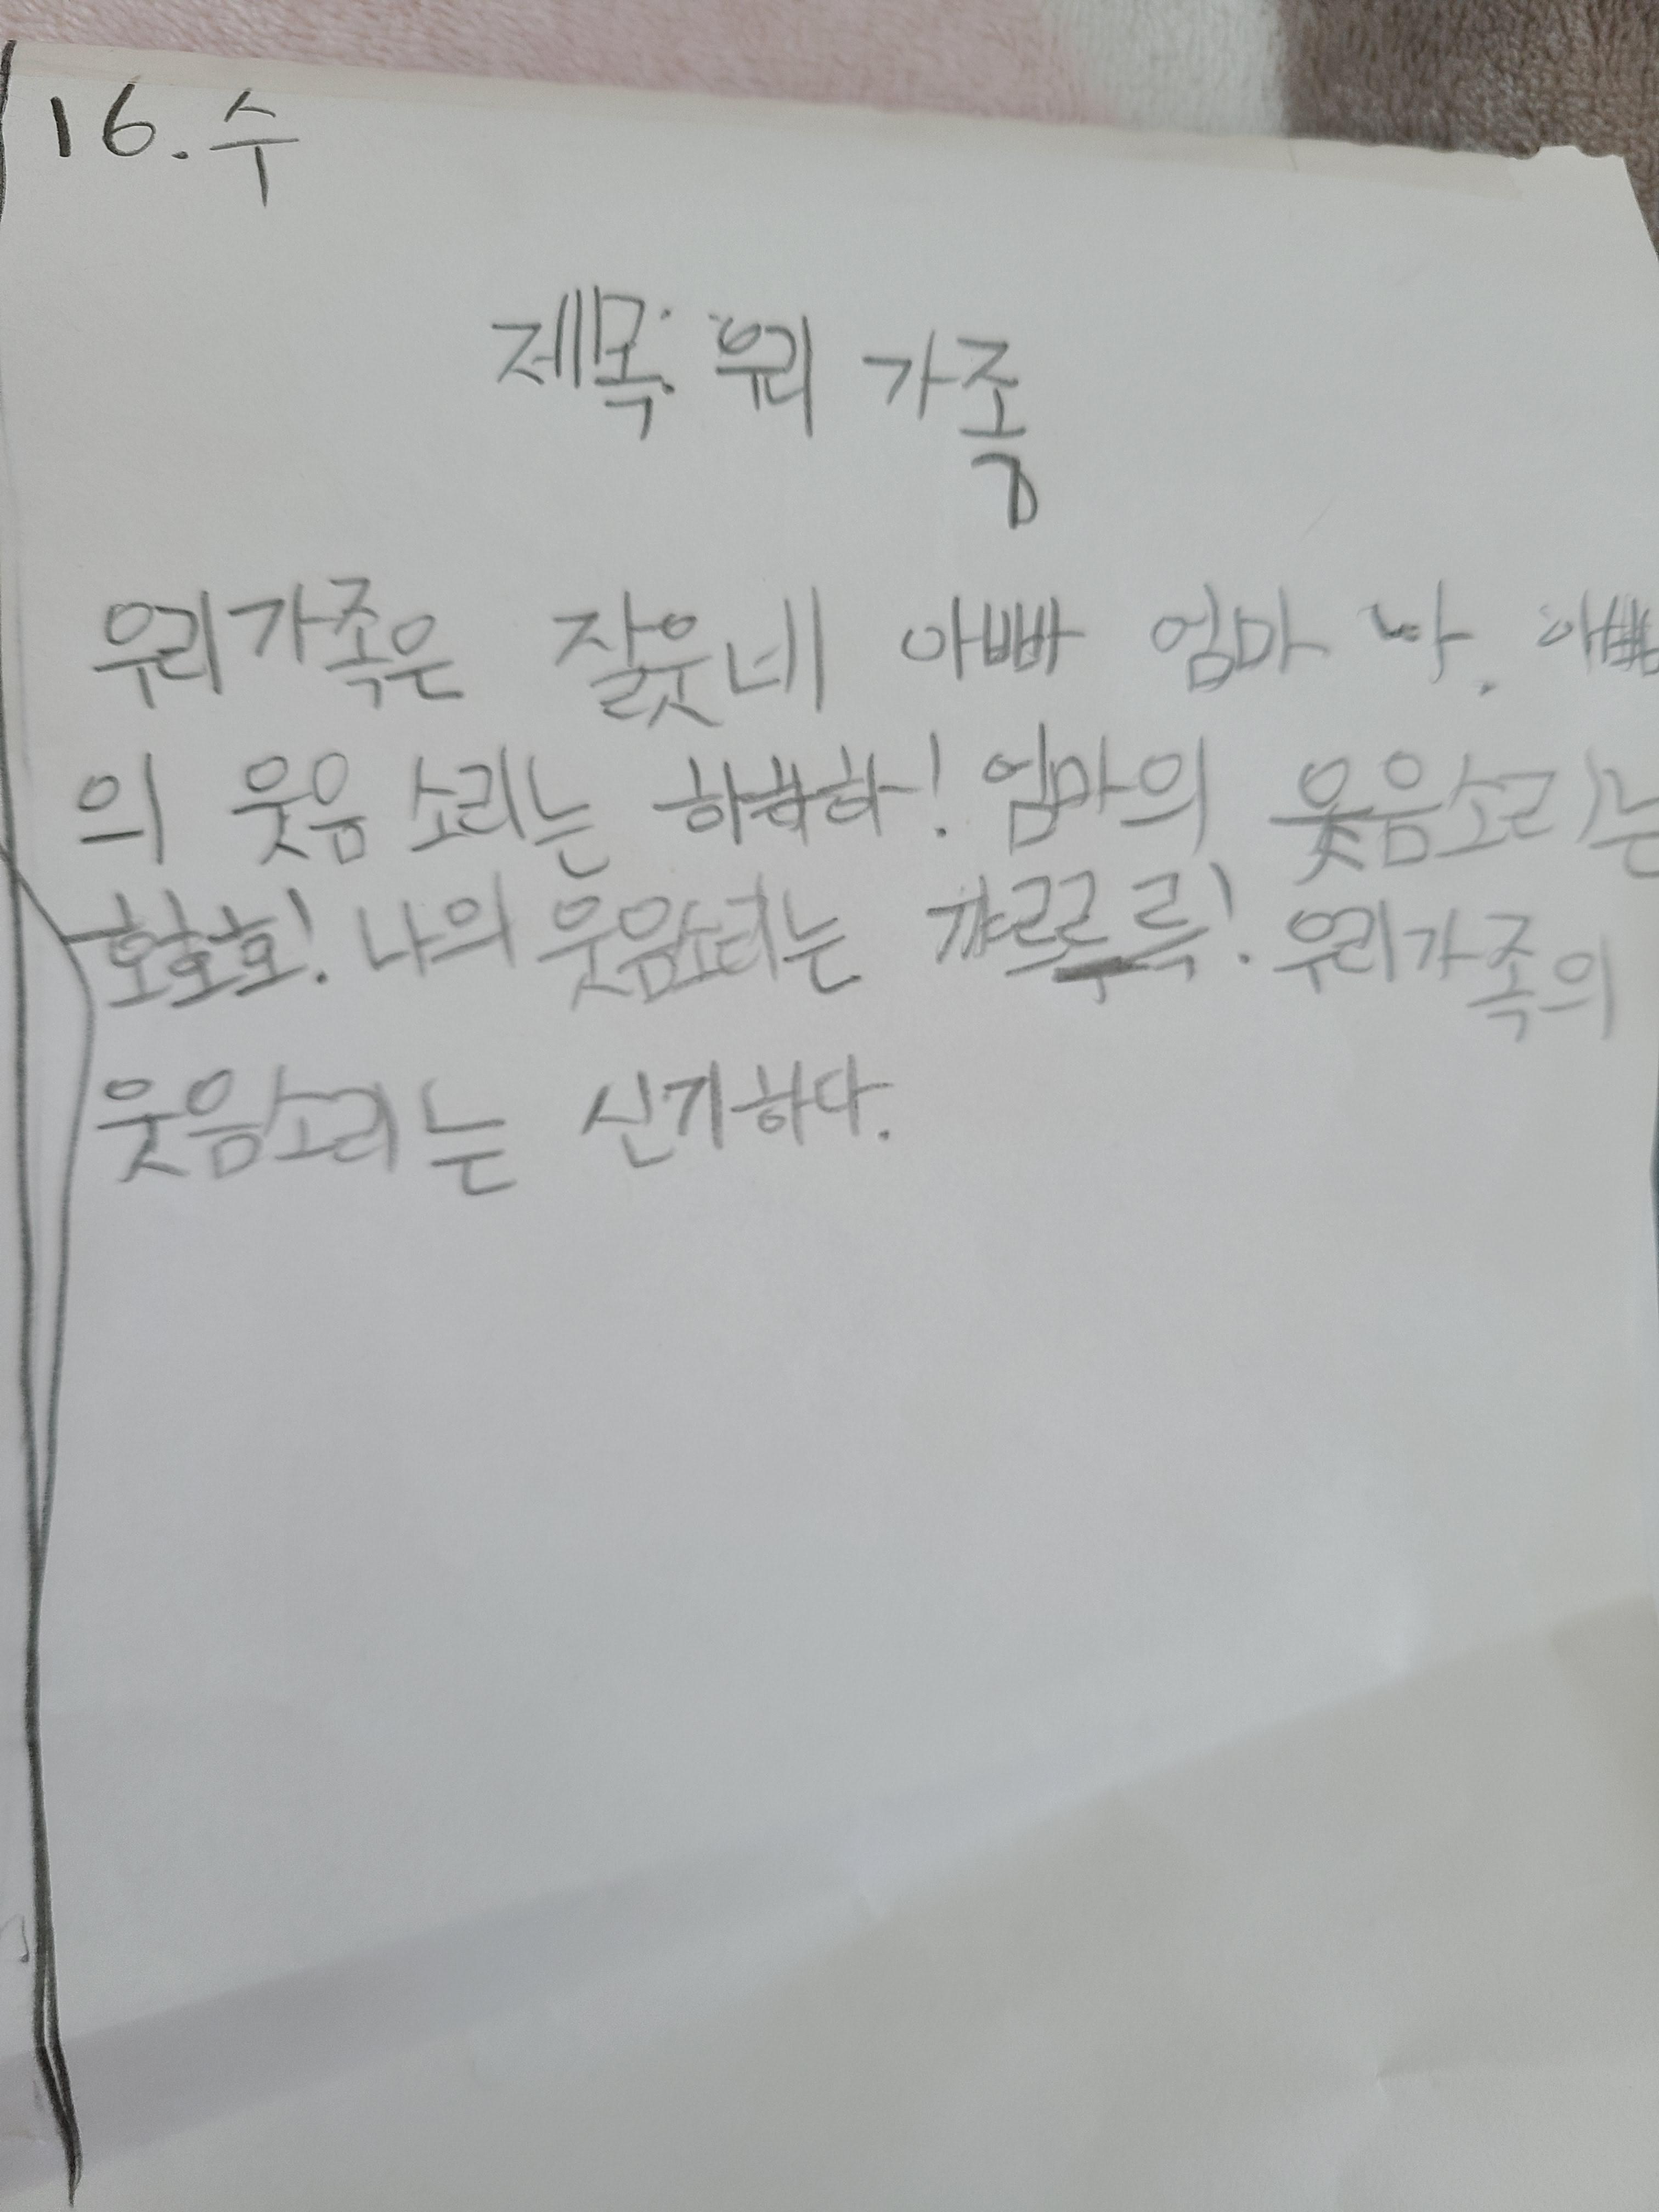 16. 수
제목: 우리 가족
우리가족은 잘웃네 아빠 엄마 나. 아빠
의 웃음 소리는 하하하! 엄마의 웃음소리는
호호호! 나의 웃음소리는 꺄르르륵! 우리가족의
웃음소리는 신기하다.